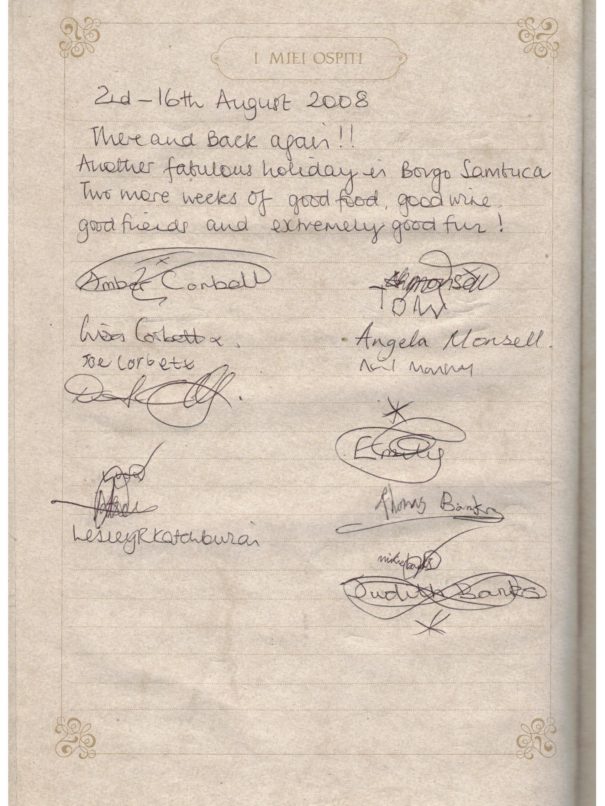 I MIEI OSPITI
2nd - 16th August 2008
There and Back again!!
Another fabulous holiday in Borgo Sambuca
Two more weeks of good food, good wine.
good friends and extremely good fun!
Amber Corbett
TOM
Lisa Corbett x.
Angela Monsell.
Joe Corbett
Emily
Thomas Banks
Lesley R Katchburian
Judith Banks